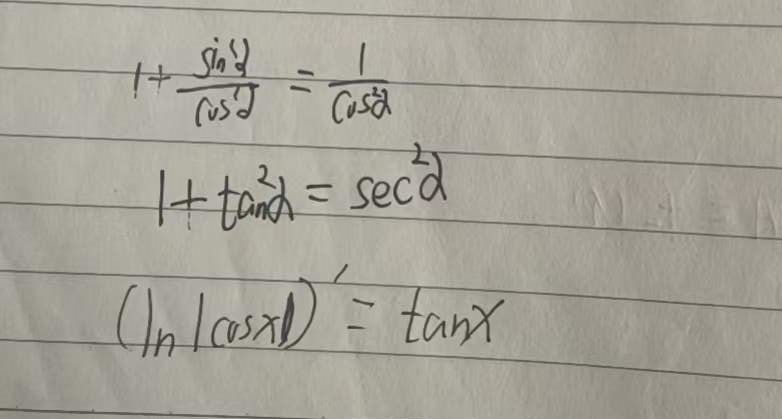 1 + sin²α/cos²α = 1/cos²α
1 + tan²α = sec²α
(ln|cosx|)′ = tanx